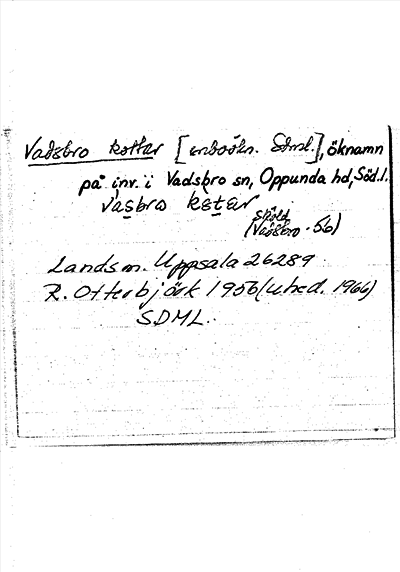 Vadsbro kattar [inboökn. Sdml.], öknamn
på inv. i Vadsbro sn, Oppunda hd, Södl.
vasbro katar
Sköld
(Vadsbro -56)
Landsm. Uppsala 26289
R. Otterbjörk 1956 (uhed. 1966)
SDML.